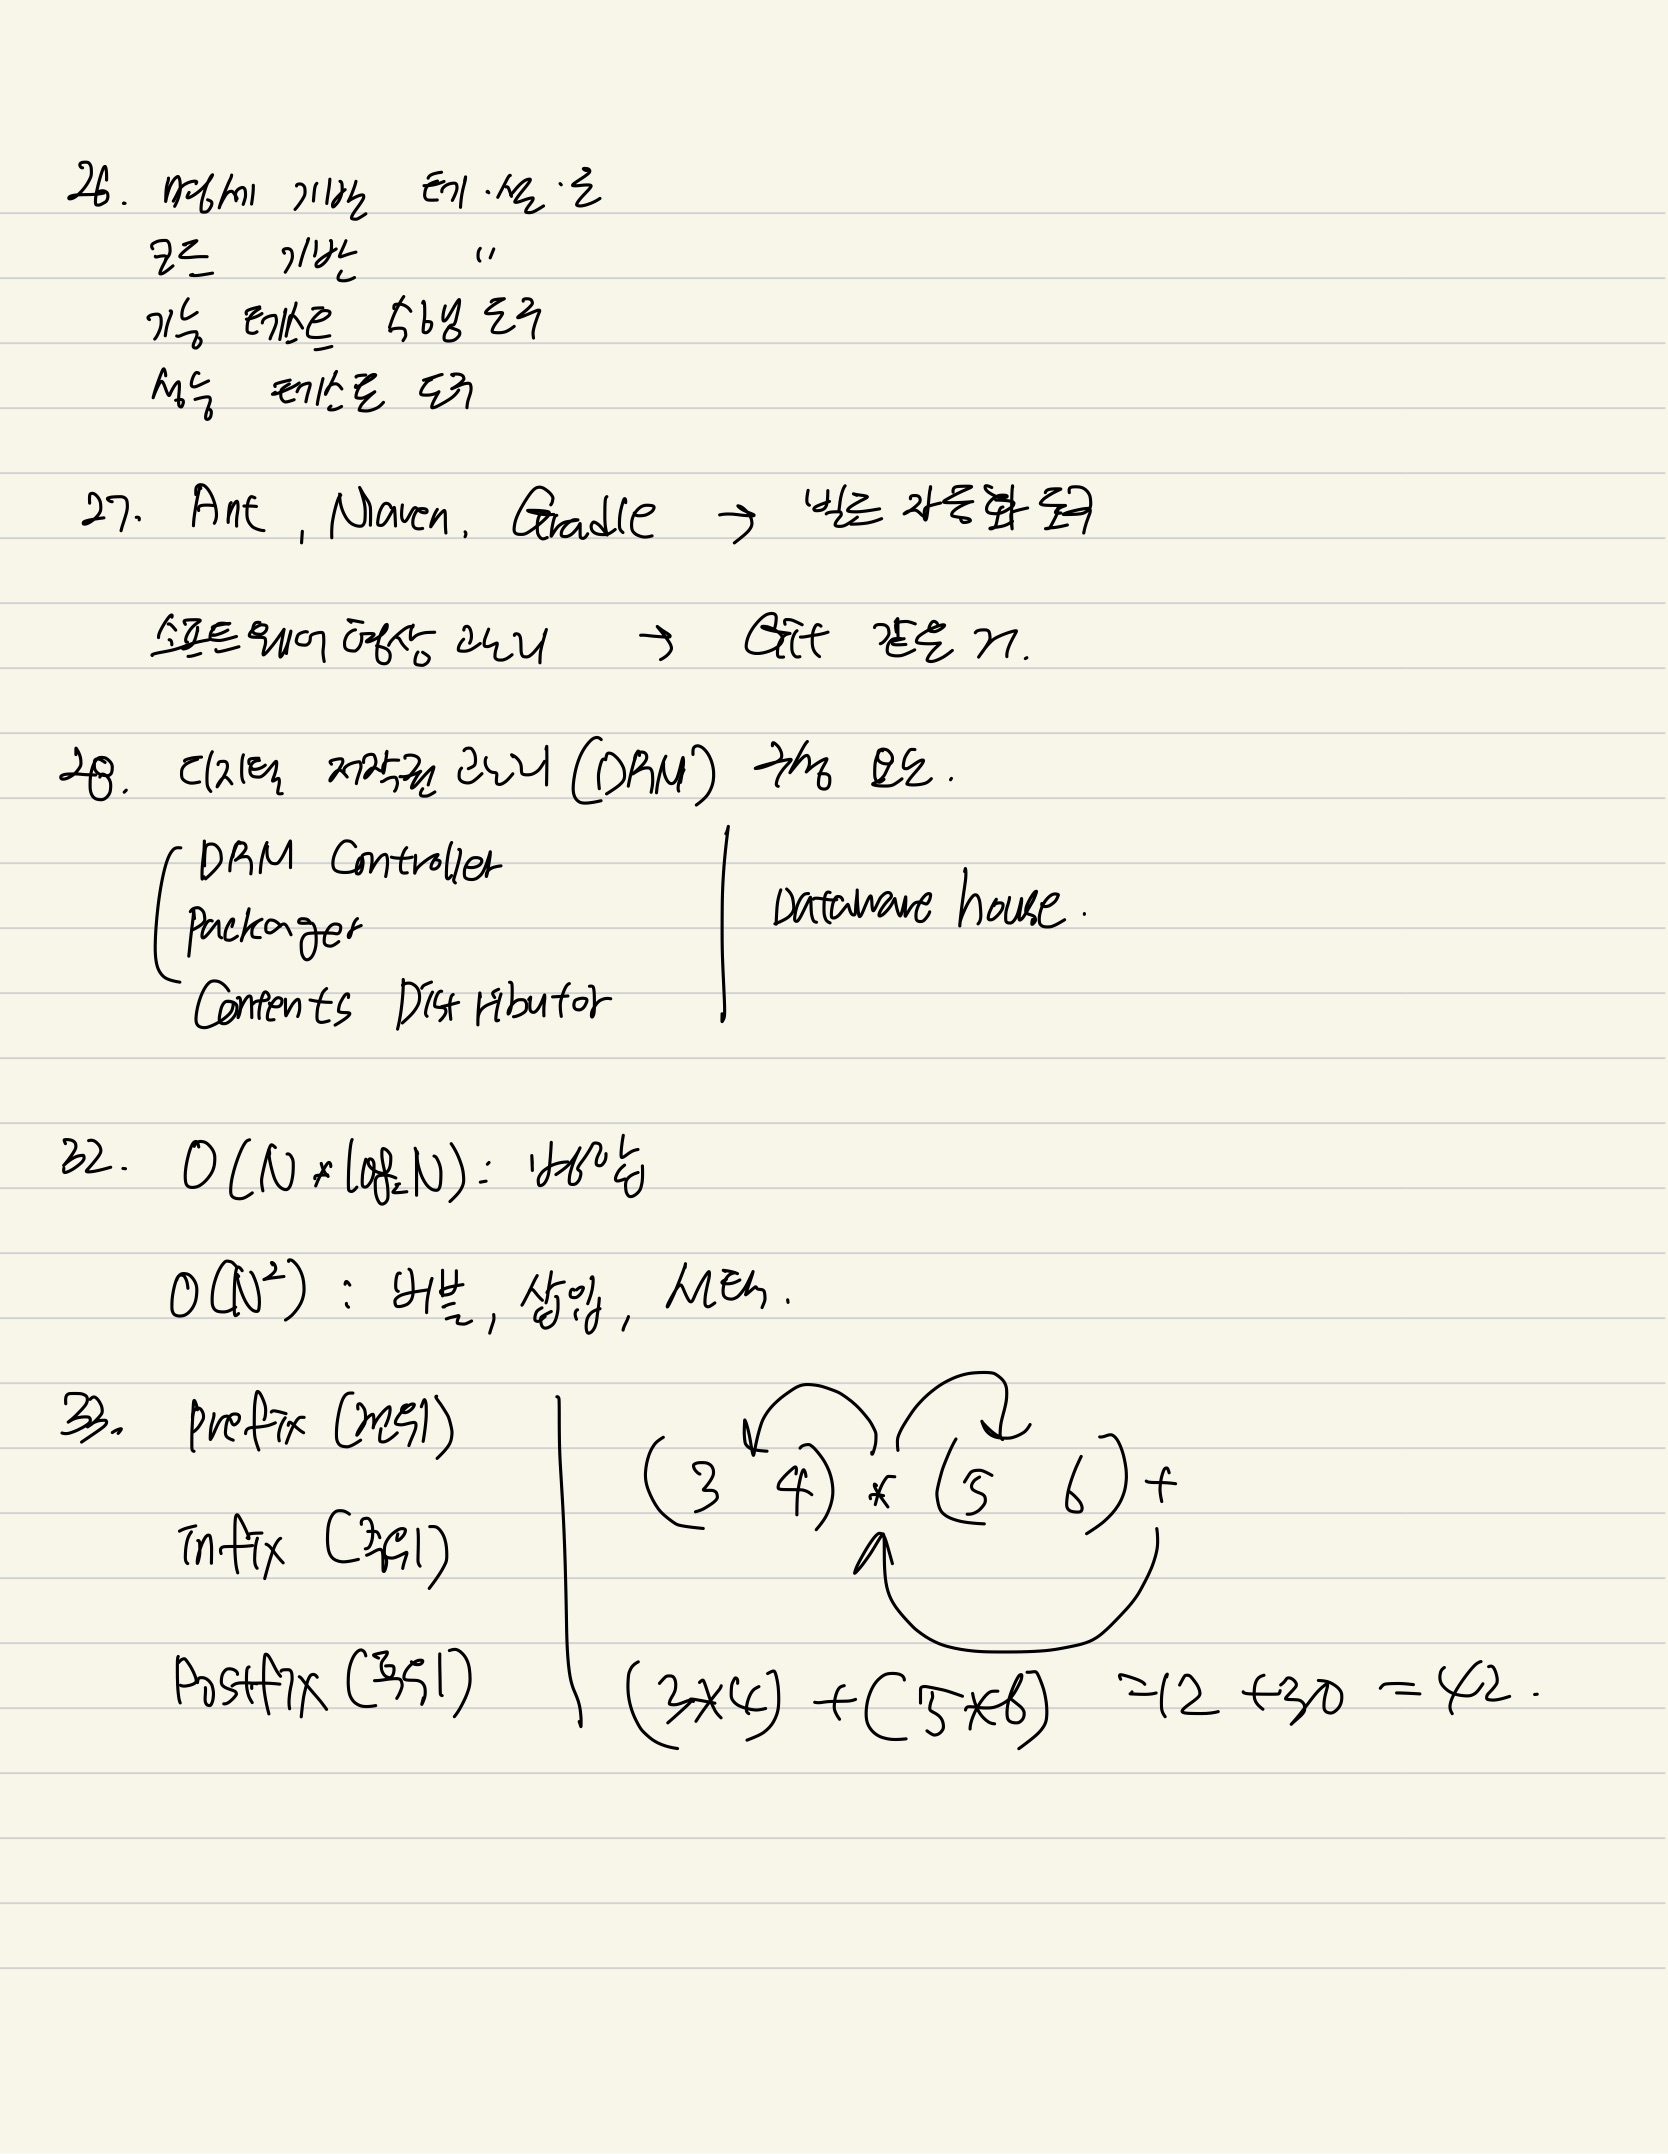 26. 명세 기반 테·설·도
코드 기반 "
기능 테스트 수행 도구
성능 테스트 도구
27. Ant, Maven, Gradle → 빌드 자동화 도구
소프트웨어 형상 관리 → Git 같은 거.
28. 디지털 저작권 관리 (DRM) 구성 요소.
DRM Controller
Packager
Contents Distributor
Dataware house.
32. O(N*log₂N) : 병합
O(N²) : 버블, 삽입, 선택.
33. prefix (전위)
infix (중위)
Postfix (후위)
(3 4) * (5 6) +
(3×4) + (5×6) = 12 + 30 = 42.